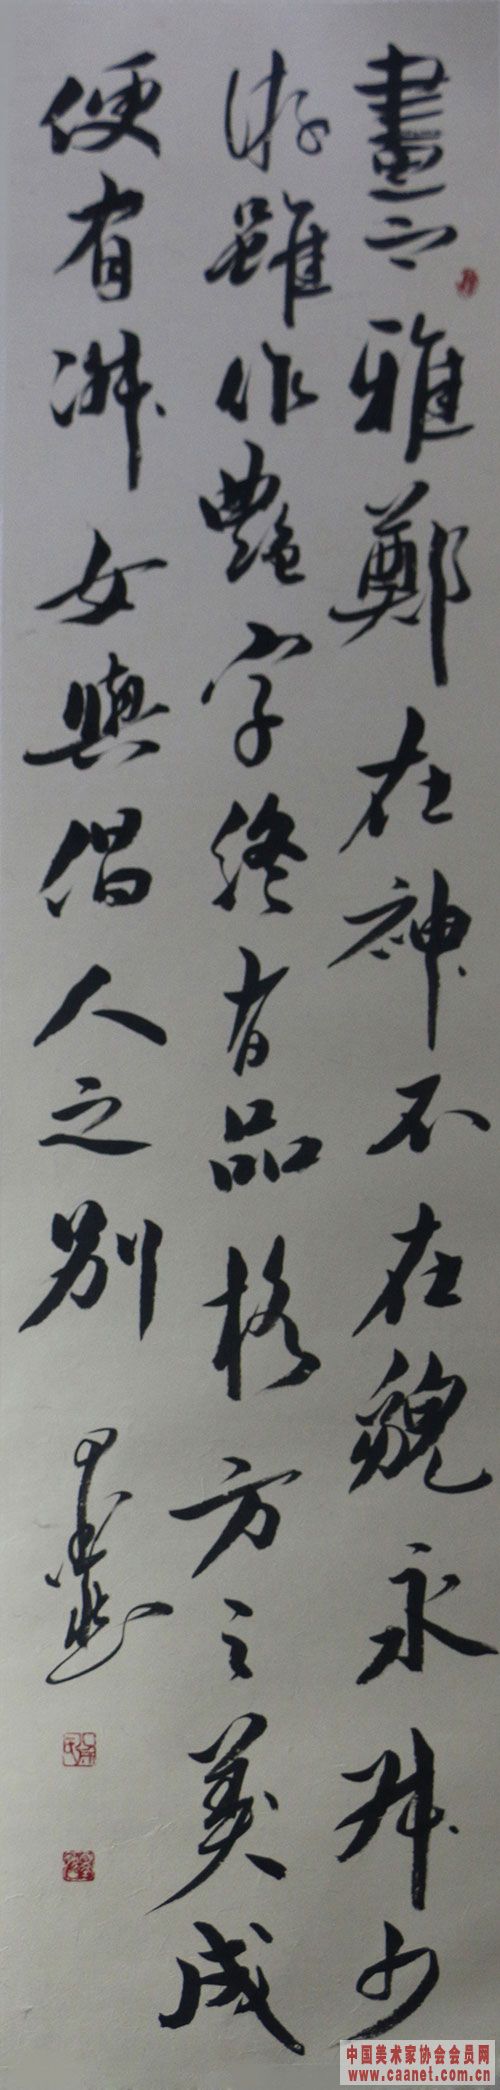 畫之雅鄭在神不在貌永叔少
游雖作艷字終有品格方之美成
便有淑女與倡人之別
中国美术家协会会员网
www.caanet.com.cn